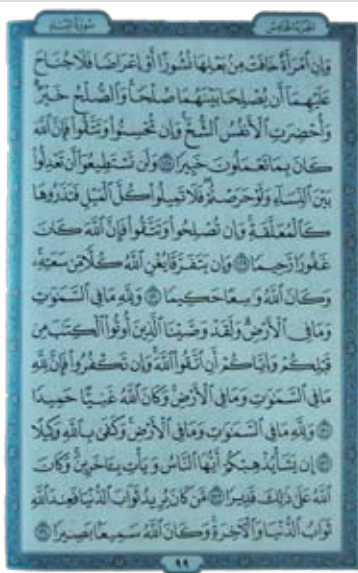 الجزء الخامس
سورة النساء
وَإِنِ ٱمْرَأَةٌ خَافَتْ مِنۢ بَعْلِهَا نُشُوزًا أَوْ إِعْرَاضًا فَلَا جُنَاحَ
عَلَيْهِمَآ أَن يُصْلِحَا بَيْنَهُمَا صُلْحًا ۚ وَٱلصُّلْحُ خَيْرٌ ۗ
وَأُحْضِرَتِ ٱلْأَنفُسُ ٱلشُّحَّ ۚ وَإِن تُحْسِنُوا۟ وَتَتَّقُوا۟ فَإِنَّ ٱللَّهَ
كَانَ بِمَا تَعْمَلُونَ خَبِيرًا ١٢٨ وَلَن تَسْتَطِيعُوٓا۟ أَن تَعْدِلُوا۟
بَيْنَ ٱلنِّسَآءِ وَلَوْ حَرَصْتُمْ ۖ فَلَا تَمِيلُوا۟ كُلَّ ٱلْمَيْلِ فَتَذَرُوهَا
كَٱلْمُعَلَّقَةِ ۚ وَإِن تُصْلِحُوا۟ وَتَتَّقُوا۟ فَإِنَّ ٱللَّهَ كَانَ
غَفُورًا رَّحِيمًا ١٢٩ وَإِن يَتَفَرَّقَا يُغْنِ ٱللَّهُ كُلًّا مِّن سَعَتِهِۦ ۚ
وَكَانَ ٱللَّهُ وَٰسِعًا حَكِيمًا ١٣٠ وَلِلَّهِ مَا فِى ٱلسَّمَٰوَٰتِ
وَمَا فِى ٱلْأَرْضِ ۗ وَلَقَدْ وَصَّيْنَا ٱلَّذِينَ أُوتُوا۟ ٱلْكِتَٰبَ مِن
قَبْلِكُمْ وَإِيَّاكُمْ أَنِ ٱتَّقُوا۟ ٱللَّهَ ۚ وَإِن تَكْفُرُوا۟ فَإِنَّ لِلَّهِ
مَا فِى ٱلسَّمَٰوَٰتِ وَمَا فِى ٱلْأَرْضِ ۚ وَكَانَ ٱللَّهُ غَنِيًّا حَمِيدًا
١٣١ وَلِلَّهِ مَا فِى ٱلسَّمَٰوَٰتِ وَمَا فِى ٱلْأَرْضِ ۚ وَكَفَىٰ بِٱللَّهِ وَكِيلًا
١٣٢ إِن يَشَأْ يُذْهِبْكُمْ أَيُّهَا ٱلنَّاسُ وَيَأْتِ بِـَٔاخَرِينَ ۚ وَكَانَ
ٱللَّهُ عَلَىٰ ذَٰلِكَ قَدِيرًا ١٣٣ مَّن كَانَ يُرِيدُ ثَوَابَ ٱلدُّنْيَا فَعِندَ ٱللَّهِ
ثَوَابُ ٱلدُّنْيَا وَٱلْـَٔاخِرَةِ ۚ وَكَانَ ٱللَّهُ سَمِيعًۢا بَصِيرًا ١٣٤
٩٩